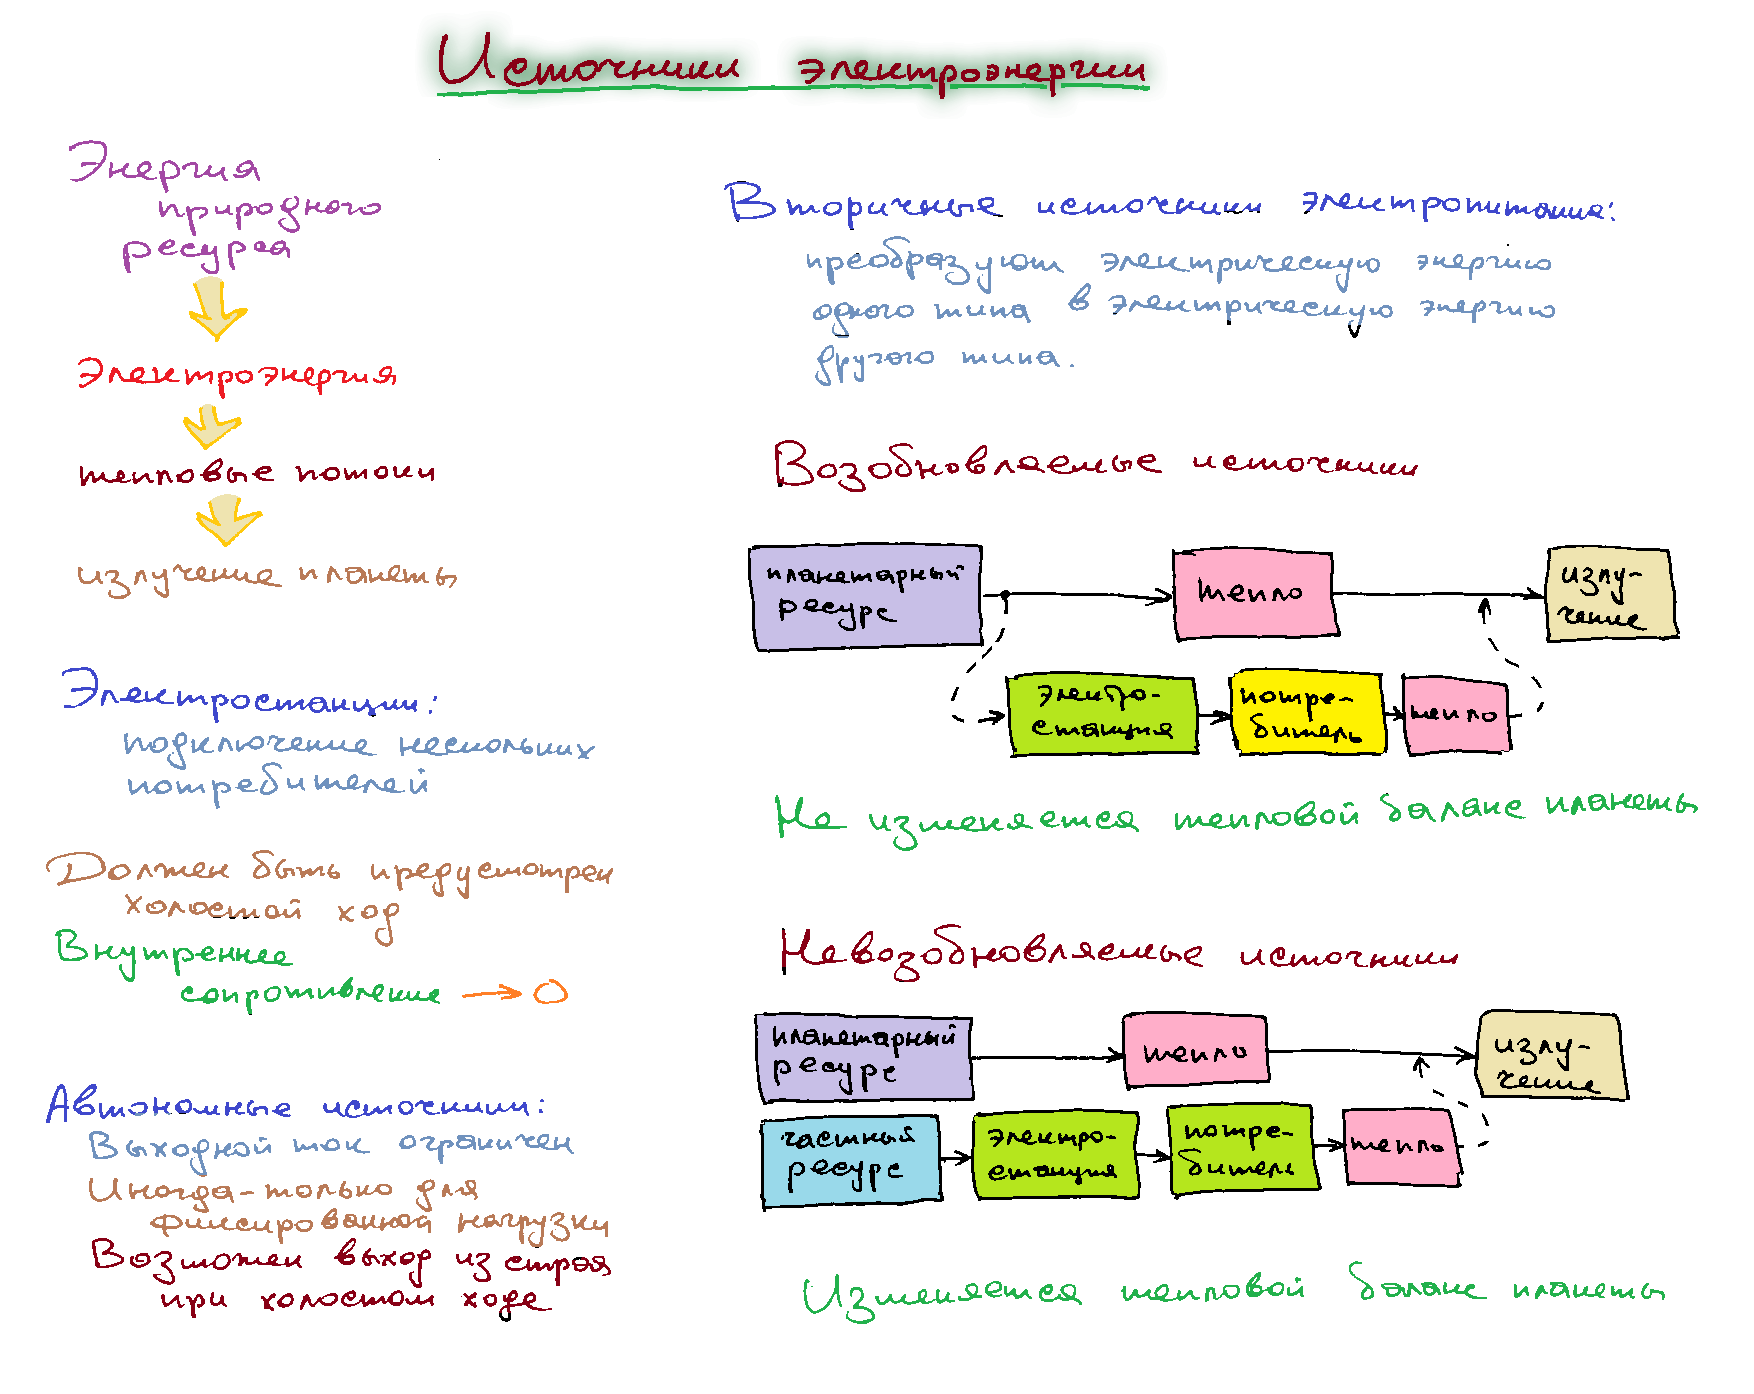 Источники электроэнергии
Энергия
природного
ресурса
Электроэнергия
тепловые потоки
излучение планеты
Электростанции:
подключение нескольких
потребителей
Должен быть предусмотрен
холостой ход
Внутреннее
сопротивление → 0
Автономные источники:
Выходной ток ограничен
Иногда-только для
фиксированной нагрузки
Возможен выход из строя
при холостом ходе
Вторичные источники электропитания:
преобразуют электрическую энергию
одного типа в электрическую энергию
другого типа.
Возобновляемые источники
планетарный
ресурс
тепло
излу-
чение
электро-
станция
потре-
битель
тепло
Не изменяется тепловой баланс планеты
Невозобновляемые источники
планетарный
ресурс
тепло
излу-
чение
частный
ресурс
электро-
станция
потре-
битель
тепло
Изменяется тепловой баланс планеты